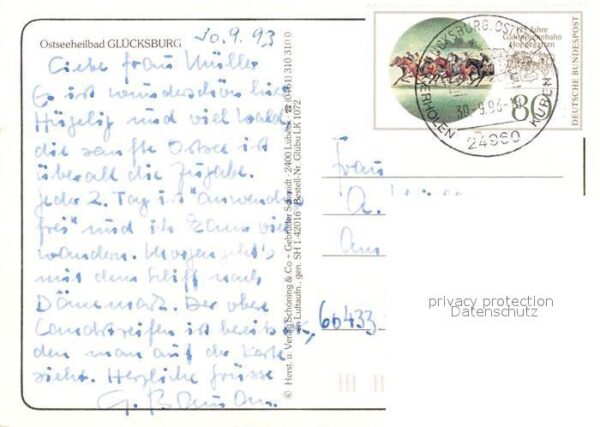 Ostseeheilbad GLÜCKSBURG
30.9.93
Liebe Frau Müller
Es ist wunderschön hier
Hügelig und viel Wald
die sanfte Ostsee ist
überall die Zugabe.
Jeder 2. Tag ist "anwend
frei" und ich kann viel
wandern. Morgen geht's
mit dem Schiff nach
Dänemark. Der obere
Landstreifen ist bereits
den man auf der Karte
sieht. Herzliche Grüsse
G.
© Herst. u. Verlag Schöning & Co + Gebrüder Schmidt · 2400 Lübeck · ☎ (0451) 310 310 0
Luftaufn. gen. SH 1-42016 · Bestell-Nr. Glübu LK 1072
Jahre
Galopprennbahn
Hoppegarten
DEUTSCHE BUNDESPOST
80
GLÜCKSBURG, OSTSEE
30.-9.93-18
24960
KUREN
Frau
A.
Am
60433
privacy protection
Datenschutz